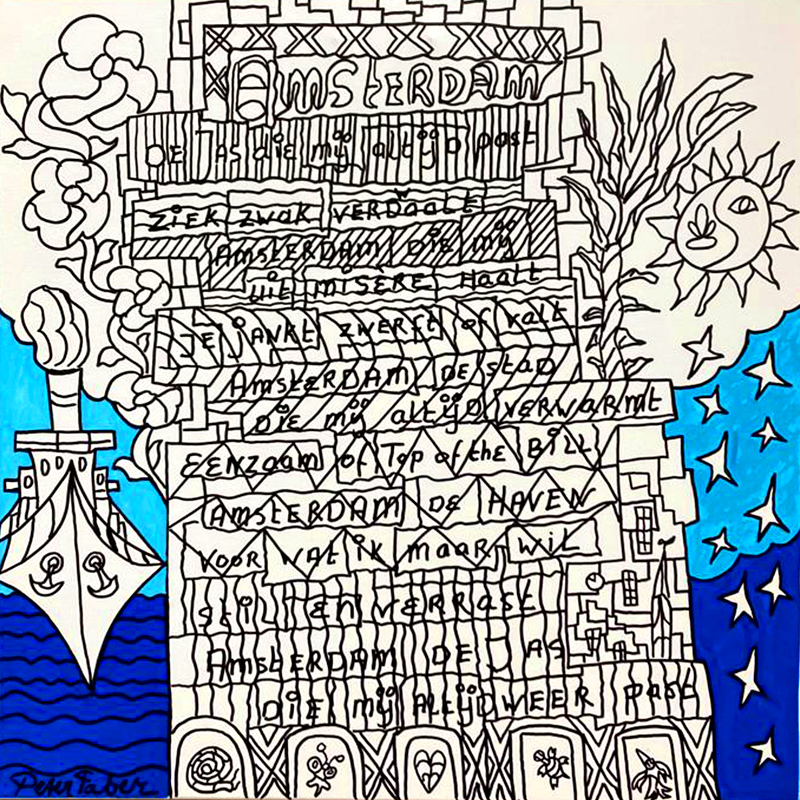 AMSTERDAM
DE JAS die mij altijd past
ZIEK ZWAK VERDWAALT
AMSTERDAM DIE mij
uit MISÈRE HAALT
JE JANKT ZWERFT of valt
AMSTERDAM DE STAD
DIE mij altijd VERWARMT
EENZAAM of Top of the BILL
AMSTERDAM DE HAVEN
VOOR WAT IK maar WIL
stil EN VERRAST
AMSTERDAM DE JAS
DIE mij ALTIJD WEER past
Peter Faber